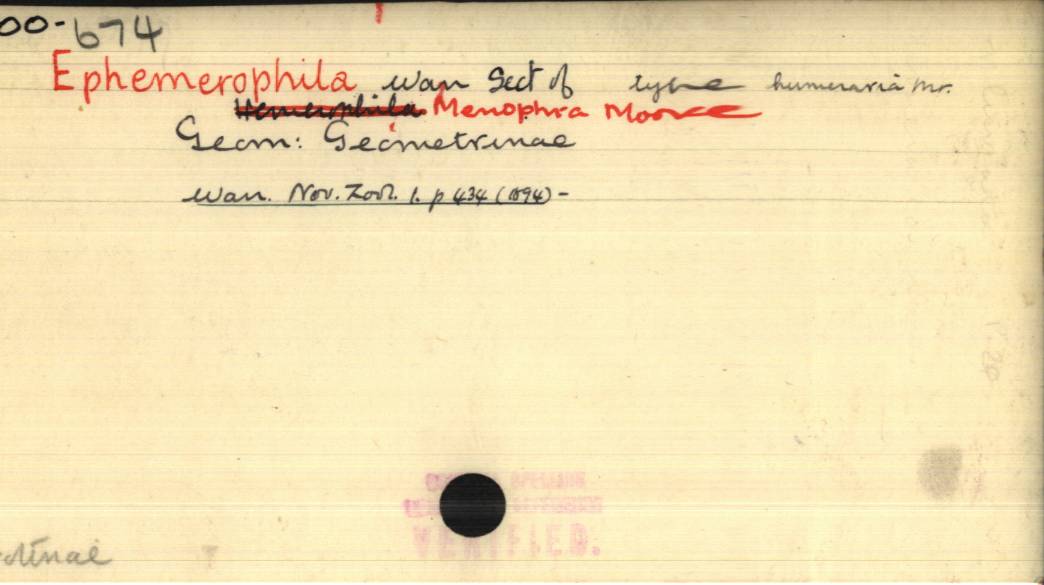 00-674
Ephemerophila Warr Sect of type humeraria Mr.
Hemerophila Menophra Moore
Geom: Geometrinae
Warr. Nov. Zool. 1. p 434 (1894) -
SPECIMEN
VERIFIED.